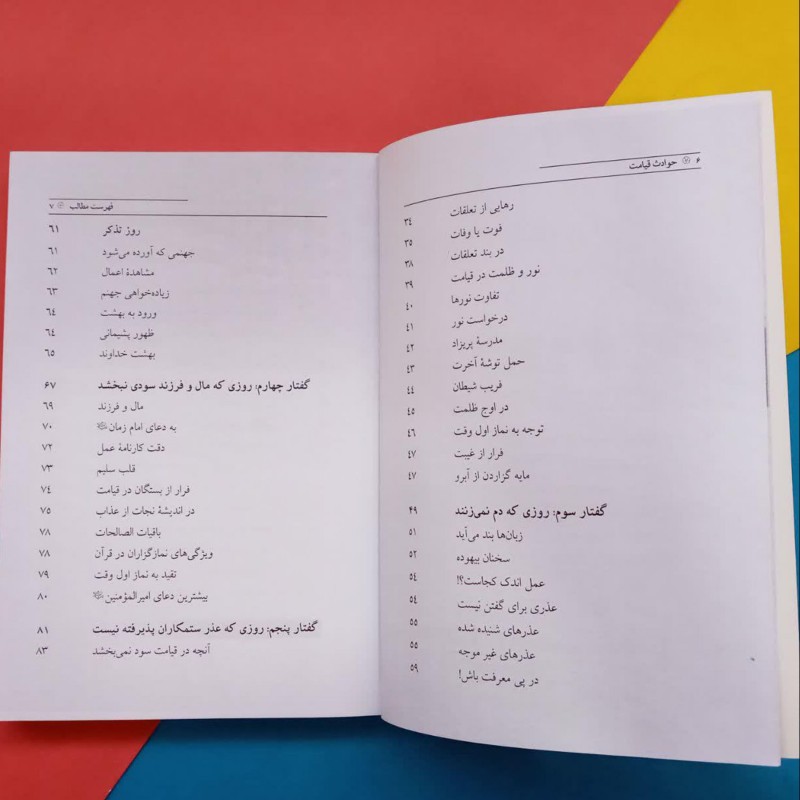 ۶ حوادث قیامت
رهایی از تعلقات ۳۴
فوت یا وفات ۳۵
در بند تعلقات ۳۸
نور و ظلمت در قیامت ۳۹
تفاوت نورها ۴۰
درخواست نور ۴۱
مدرسهٔ پریزاد ۴۲
حمل توشهٔ آخرت ۴۳
فریب شیطان ۴۴
در اوج ظلمت ۴۵
توجه به نماز اول وقت ۴۶
فرار از غیبت ۴۷
مایه گزاردن از آبرو ۴۷
گفتار سوم: روزی که دم نمی‌زنند ۴۹
زبان‌ها بند می‌آید ۵۱
سخنان بیهوده ۵۲
عمل اندک کجاست؟! ۵۴
عذری برای گفتن نیست ۵۴
عذرهای شنیده شده ۵۵
عذرهای غیر موجه ۵۵
در پی معرفت باش! ۵۹
فهرست مطالب ۷
روز تذکر ۶۱
جهنمی که آورده می‌شود ۶۱
مشاهدهٔ اعمال ۶۲
زیاده‌خواهی جهنم ۶۳
ورود به بهشت ۶۴
ظهور پشیمانی ۶۴
بهشت خداوند ۶۵
گفتار چهارم: روزی که مال و فرزند سودی نبخشد ۶۷
مال و فرزند ۶۹
به دعای امام زمان ۷۰
دقت کارنامهٔ عمل ۷۲
قلب سلیم ۷۳
فرار از بستگان در قیامت ۷۴
در اندیشهٔ نجات از عذاب ۷۵
باقیات الصالحات ۷۸
ویژگی‌های نمازگزاران در قرآن ۷۸
تقید به نماز اول وقت ۷۹
بیشترین دعای امیرالمؤمنین ۸۰
گفتار پنجم: روزی که عذر ستمکاران پذیرفته نیست ۸۱
آنچه در قیامت سود نمی‌بخشد ۸۳